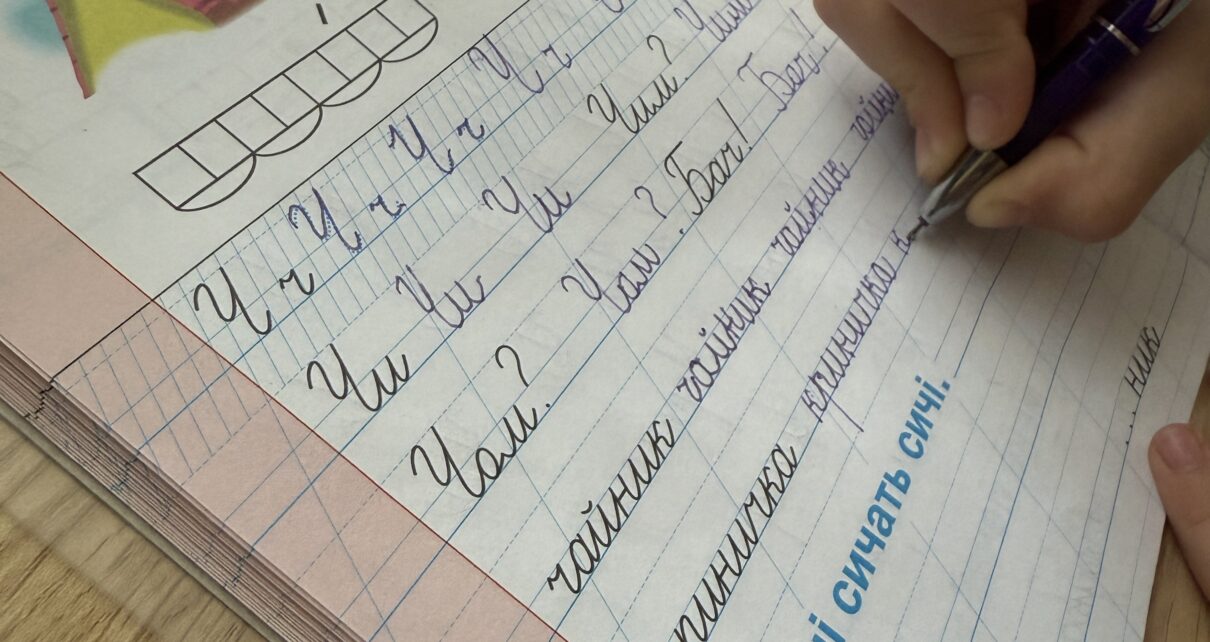 Ч ч Ч ч Ч ч Ч ч
Чи Чи Чи Чим? Чим
Чом? Чом? Бач! Бач!
чайник чайник чайник чайни
риничка криничка к
і сичать сичі.
ник